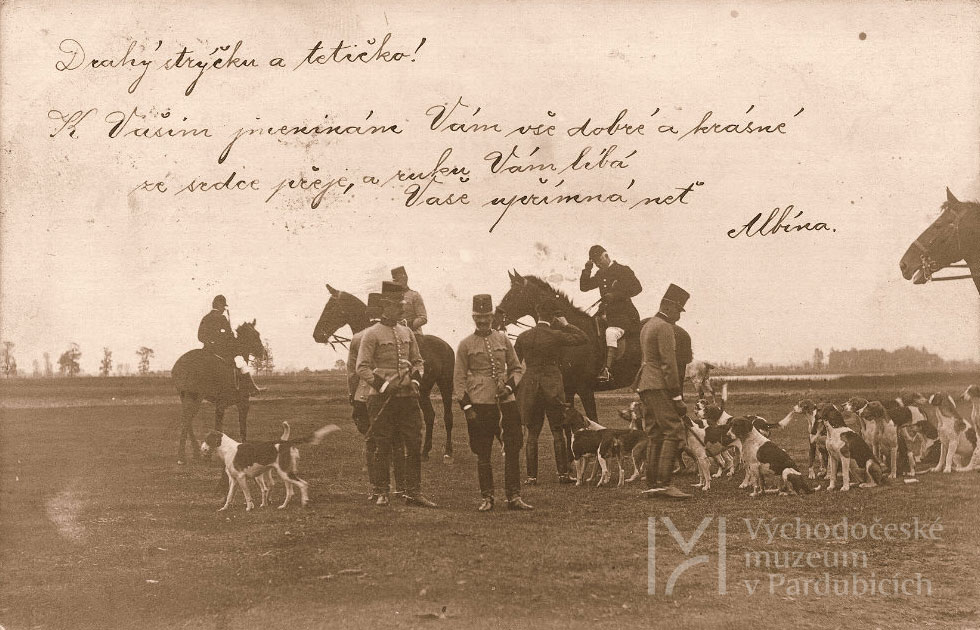 Drahý strýčku a tetičko!
K Vašim jmeninám Vám vše dobré a krásné
ze srdce přeje, a ruku Vám líbá
Vaše upřímná neť
Albína.
Východočeské
muzeum
v Pardubicích